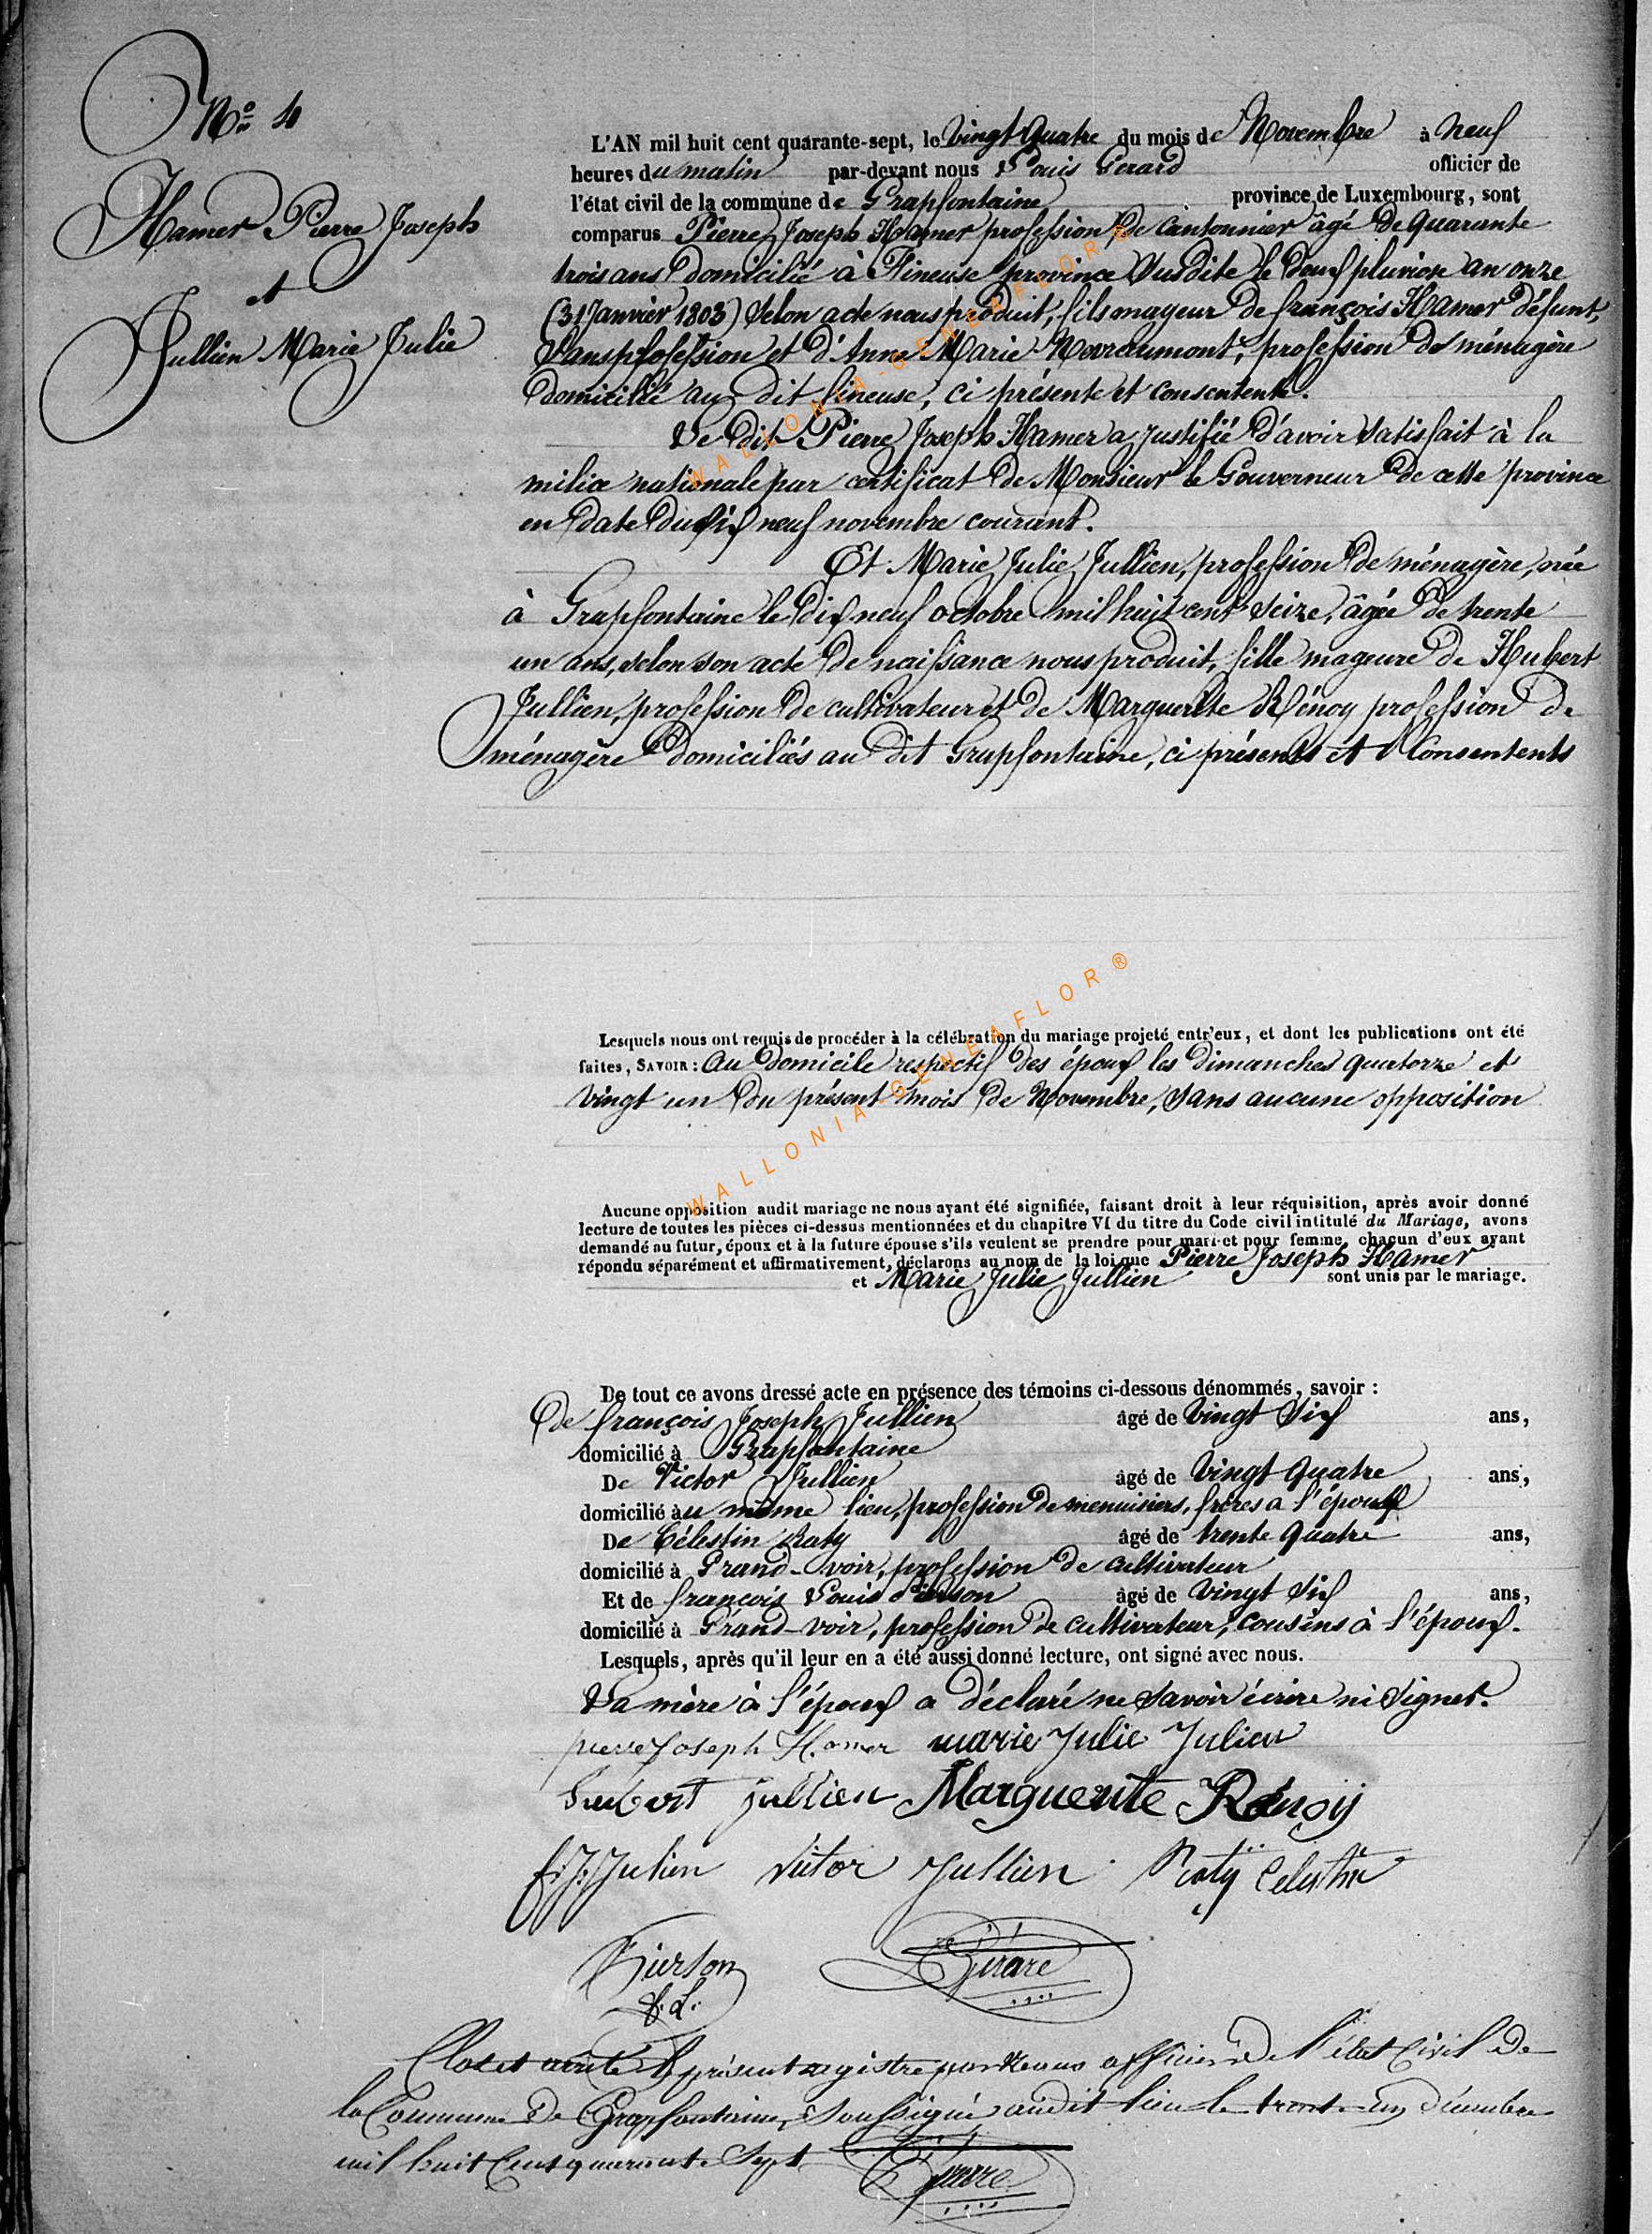 Nº 4
Hamer Pierre Joseph
et
Jullien Marie Julie
L'AN mil huit cent quarante-sept, le Vingt Quatre du mois de Novembre à Neuf
heures du matin par-devant nous Louis Gerard officier de
l'état civil de la commune de Grapfontaine province de Luxembourg, sont
comparus Pierre Joseph Hamer profession de Cantonnier âgé de quarante
trois ans domicilié à Fineuse province susdite le deux pluviose an onze
(31 Janvier 1803) selon acte nous produit, fils mayeur de françois Hamer défunt,
sans profession et d'Anne Marie Noiraumont, profession de ménagère
domicilié au dit fineuse, ci présente et consentente.
Le dit Pierre Joseph Hamer a justifié d'avoir satisfait à la
milice nationale par certificat de Monsieur le Gouverneur de cette province
en date du dix neuf novembre courant.
Et Marie Julie Jullien, profession de ménagère, née
à Grapfontaine le dix neuf octobre mil huit cent seize, âgée de trente
un ans, selon son acte de naissance nous produit, fille mageure de Hubert
Jullien, profession de cultivateur et de Marguerite Rénoy profession de
ménagère domiciliés au dit Grapfontaine, ci présents et Consentents
Lesquels nous ont requis de procéder à la célébration du mariage projeté entr'eux, et dont les publications ont été
faites, SAVOIR : au domicile respectif des époux les dimanches quatorze et
vingt un du présent mois de Novembre, sans aucune opposition
Aucune opposition audit mariage ne nous ayant été signifiée, faisant droit à leur réquisition, après avoir donné
lecture de toutes les pièces ci-dessus mentionnées et du chapitre VI du titre du Code civil intitulé du Mariage, avons
demandé au futur, époux et à la future épouse s'ils veulent se prendre pour mari et pour femme, chacun d'eux ayant
répondu séparément et affirmativement, déclarons au nom de la loi que Pierre Joseph Hamer
et Marie Julie Jullien sont unis par le mariage.
De tout ce avons dressé acte en présence des témoins ci-dessous dénommés, savoir :
De françois Joseph Jullien âgé de vingt Six ans,
domicilié à Grapfontaine
De Victor Jullien âgé de vingt Quatre ans,
domicilié au même lieu, profession de menuisiers, frères a l'épouse
De Célestin Raty âgé de trente Quatre ans,
domicilié à Grand-voir, profession de cultivateur
Et de françois Louis Pierson âgé de vingt Six ans,
domicilié à Grand-voir, profession de cultivateur, cousins à l'époux.
Lesquels, après qu'il leur en a été aussi donné lecture, ont signé avec nous.
La mère à l'époux a déclaré ne savoir écrire ni signer.
pierre Joseph Hamer marie Julie Julien
hubert jullien Marguerite Rénoij
f: J: Julien Victor Jullien Raty Celestin
Pierson
f. L.
Gérard
Clos et arrêté le présent registre par nous officier de l'état Civil de
la Commune de Grapfontaine, Soussigné audit lieu le trente un décembre
mil huit Cent quarante Sept
Gérard
WALLONIA-GENEAFLOR®
WALLONIA-GENEAFLOR®